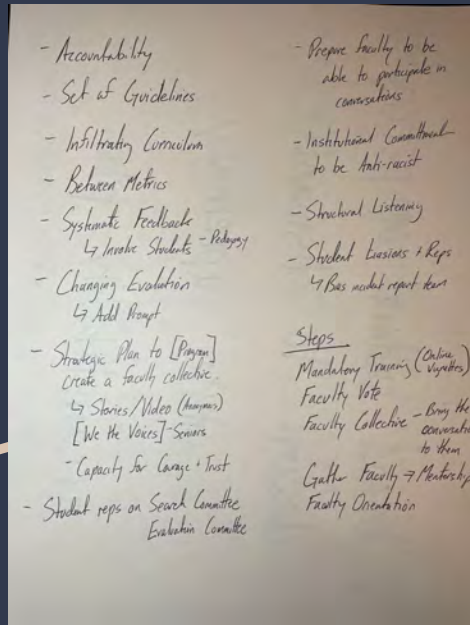 - Accountability
- Set of Guidelines
- Infiltrating Curriculum
- Between Metrics
- Systematic Feedback
↳ Involve Students - Pedagogy
- Changing Evaluation
↳ Add Prompt
- Strategic Plan to [Program]
create a faculty collective.
↳ Stories/Video (Anonymous)
[We the Voices] - Seniors
- Capacity for Courage + Trust
- Student reps on Search Committee
Evaluation Committee
- Prepare faculty to be
able to participate in
conversations
- Institutional Commitment
to be Anti-racist
- Structural Listening
- Student Liasions + Reps
↳ Bias incident report team
Steps
Mandatory Training (Online
Vignettes)
Faculty Vote
Faculty Collective - Bring the
conversation
to them
Gather Faculty → Mentorship
Faculty Orientation